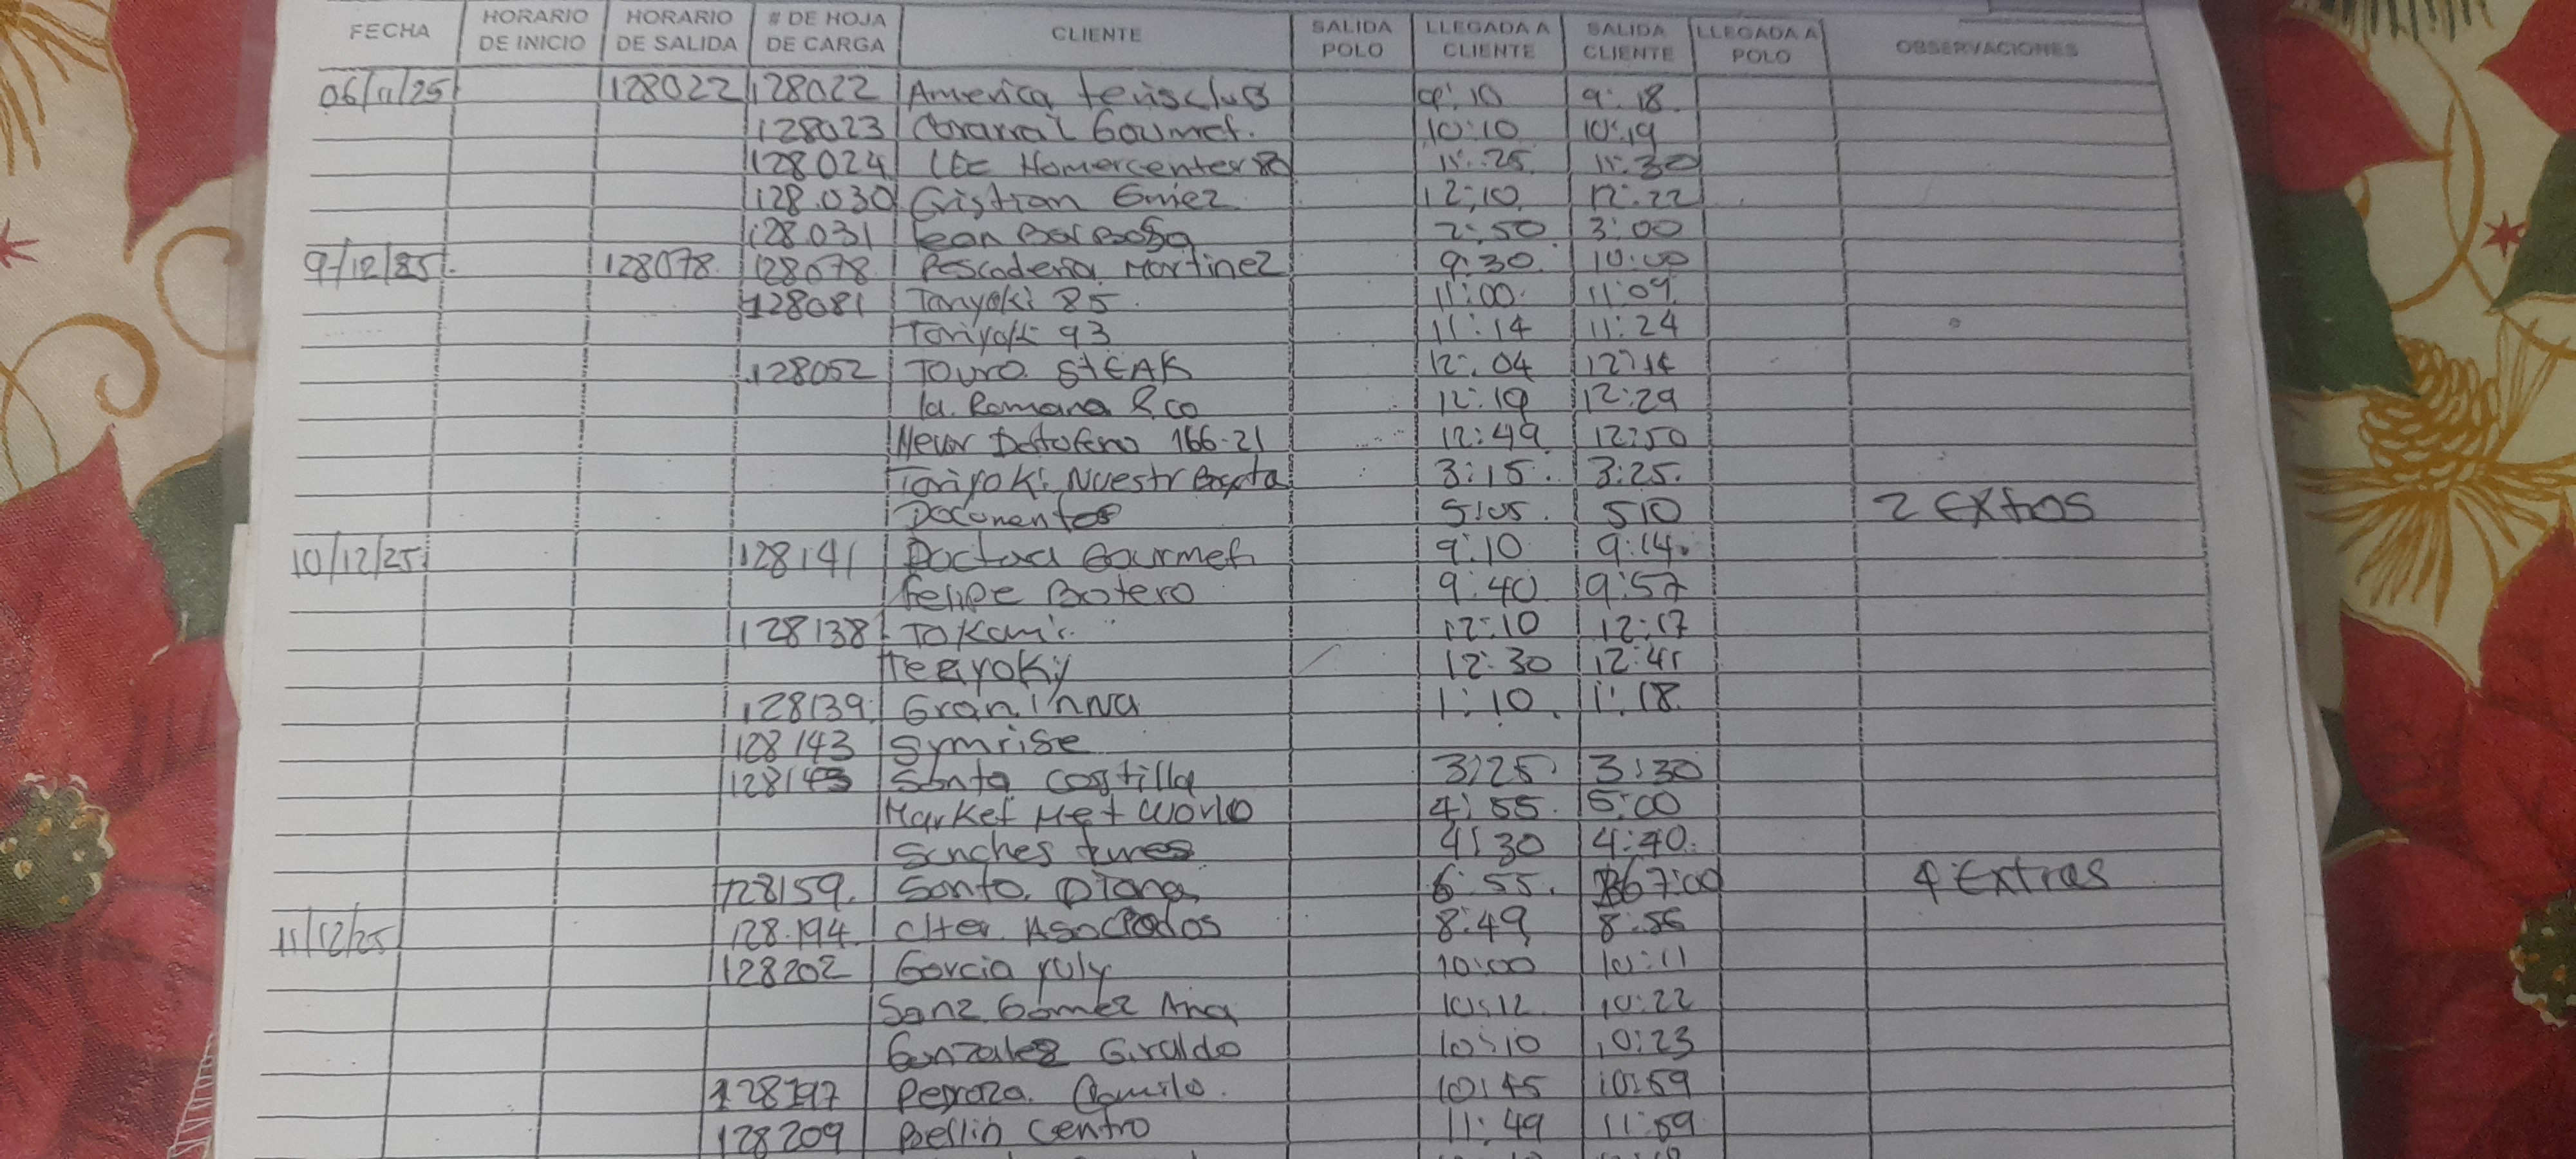 FECHA HORARIO DE INICIO HORARIO DE SALIDA # DE HOJA DE CARGA CLIENTE SALIDA POLO LLEGADA A CLIENTE SALIDA CLIENTE LLEGADA A POLO OBSERVACIONES
06/11/25 128022 128022 America tenisclub 9:10 9:18
128023 Goumet. 10:10 10:19
128024 Homercenter 80 11:25 11:30
128.030 Cristian Gmez 12:10 12:22
128.031 Jean Barbosa 2:50 3:00
9/12/25 128078 128078 Pescaderia Martinez 9:30 10:00
128081 Tanyoki 85 11:00 11:09
Toriyoki 93 11:14 11:24
128052 Touro STEAK 12:04 12:14
la Romana & co 12:19 12:29
166-21 12:49 12:50
Toriyoki Nuestr Bogota 3:15 3:25
Documentos 5:05 510 2 Extras
10/12/25 128141 Doctora Gourmet 9:10 9:14
Felipe Botero 9:40 9:57
128138 Tokami 12:10 12:17
Teeyoky 12:30 12:41
128139 Gran Inna 1:10 1:18
128143 Symrise
128143 Santa costilla 3:25 3:30
Market Met World 4:55 5:00
Sanches 4:30 4:40
128159 Santo Diana 6:55 7:00 4 Extras
11/12/25 128.194 Asociados 8:49 8:56
128202 Garcia yuly 10:00 10:11
Sanz Gomez Ana 10:12 10:22
Gonzalez Giraldo 10:10 10:23
128197 Pedraza Camilo 10:45 10:59
128209 Bellin Centro 11:49 11:59